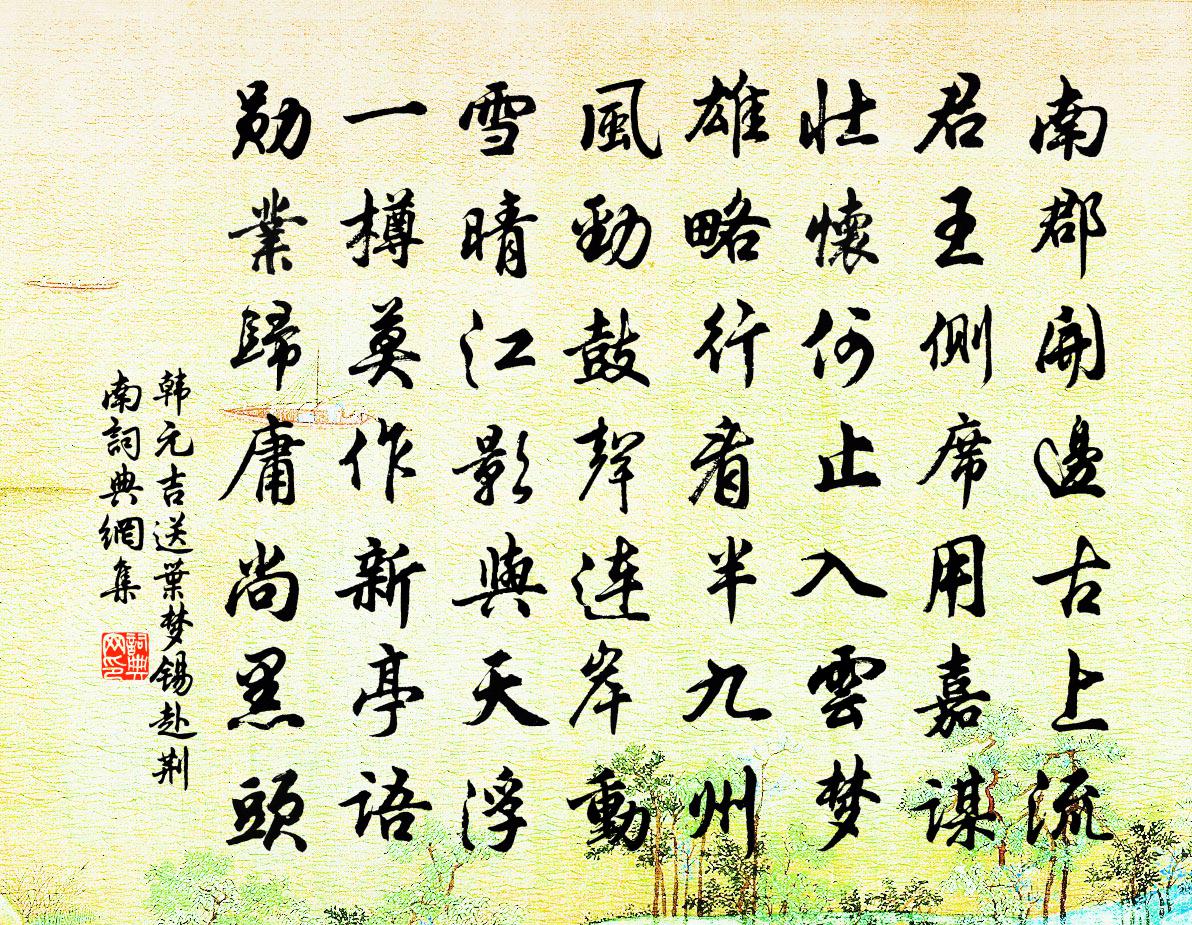 南郡開邊古上流
君王側席用嘉謀
壮懷何止入雲梦
雄略行看半九州
風勁鼓聲連岸動
雪晴江影與天浮
一樽莫作新亭語
勛業歸庸尚黑頭
韩元吉送葉梦锡赴荆
南詞典網集
詞典网印